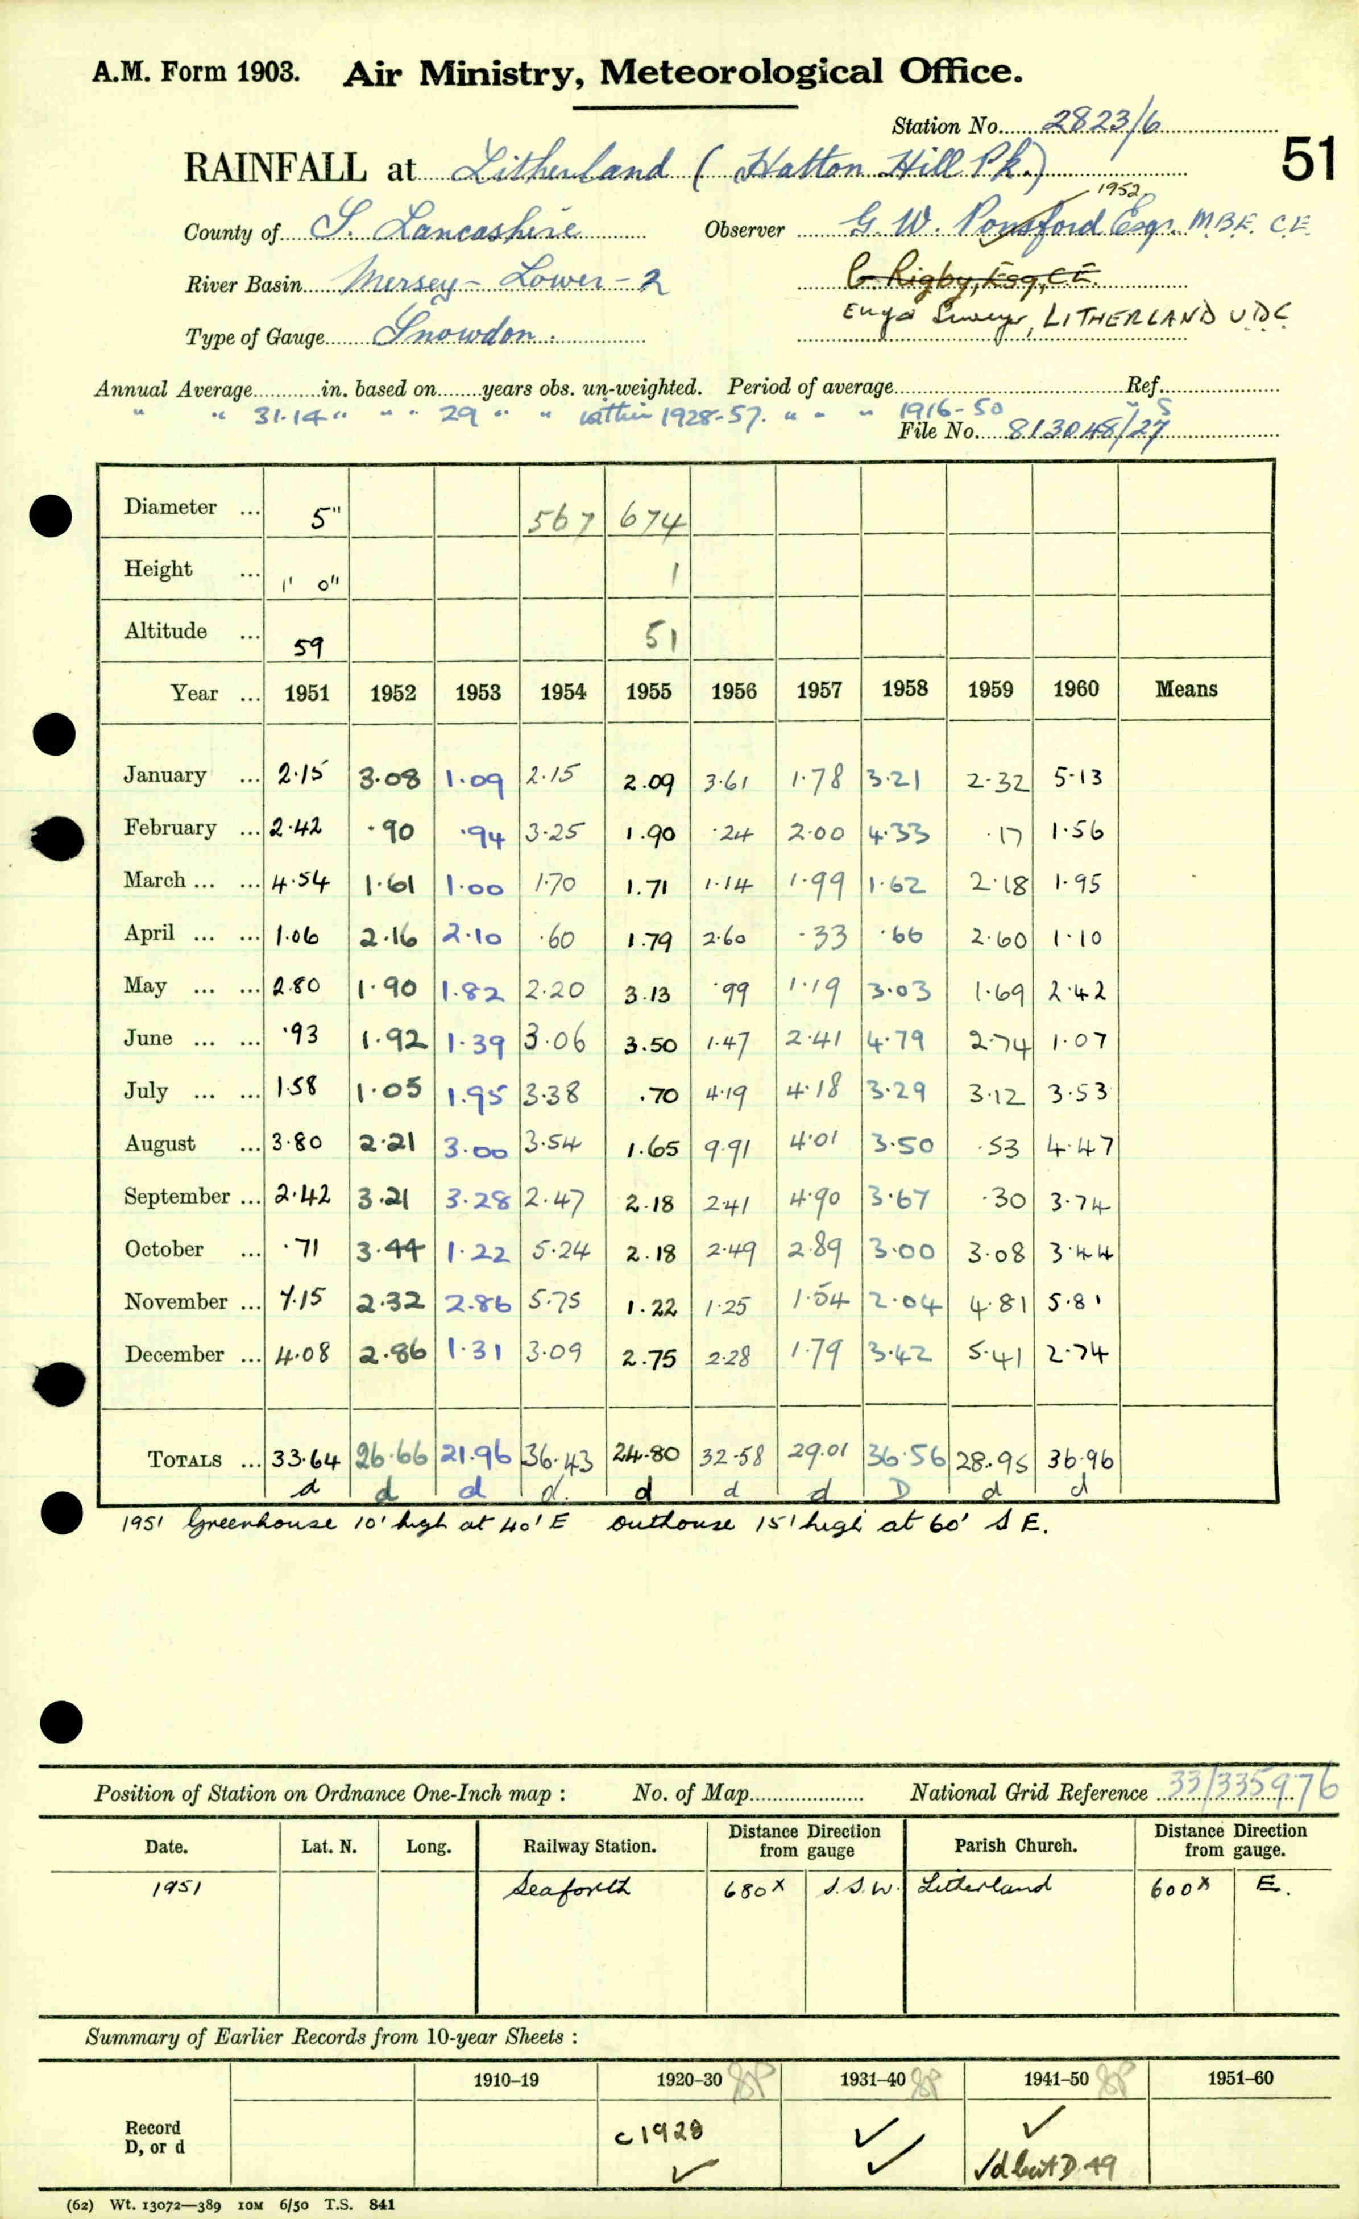 A.M. Form 1903. Air Ministry, Meteorological Office.
Station No. 2823/6
RAINFALL at Litherland (Hatton Hill Pk.) 51
1952
County of S. Lancashire Observer G. W. Ponsford Esqr. M.B.E. C.E.
River Basin Mersey - Lower - 2 C Rigby, Esq, C.E.
Type of Gauge Snowdon. Engr & Surveyor, LITHERLAND U.D.C
Annual Average in. based on years obs. un-weighted. Period of average Ref.
" " 31.14 " " " 29 " " within 1928-57. " " " 1916-50 " S
File No. 813048/27
Diameter ... 5" 567 674
Height ... 1' 0" 1
Altitude ... 59 51
Year ... 1951 1952 1953 1954 1955 1956 1957 1958 1959 1960 Means
January ... 2.15 3.08 1.09 2.15 2.09 3.61 1.78 3.21 2.32 5.13
February ... 2.42 .90 .94 3.25 1.90 .24 2.00 4.33 .17 1.56
March ... ... 4.54 1.61 1.00 1.70 1.71 1.14 1.99 1.62 2.18 1.95
April ... ... 1.06 2.16 2.10 .60 1.79 2.60 .33 .66 2.60 1.10
May ... ... 2.80 1.90 1.82 2.20 3.13 .99 1.19 3.03 1.69 2.42
June ... ... .93 1.92 1.39 3.06 3.50 1.47 2.41 4.79 2.74 1.07
July ... ... 1.58 1.05 1.95 3.38 .70 4.19 4.18 3.29 3.12 3.53
August ... 3.80 2.21 3.00 3.54 1.65 9.91 4.01 3.50 .53 4.47
September ... 2.42 3.21 3.28 2.47 2.18 2.41 4.90 3.67 .30 3.74
October ... .71 3.44 1.22 5.24 2.18 2.49 2.89 3.00 3.08 3.44
November ... 7.15 2.32 2.86 5.75 1.22 1.25 1.54 2.04 4.81 5.81
December ... 4.08 2.86 1.31 3.09 2.75 2.28 1.79 3.42 5.41 2.74
TOTALS ... 33.64 26.66 21.96 36.43 24.80 32.58 29.01 36.56 28.95 36.96
d d d d. d d d D d d
1951 Greenhouse 10' high at 40' E outhouse 15' high at 60' S E.
Position of Station on Ordnance One-Inch map : No. of Map National Grid Reference 33/335976
Date. Lat. N. Long. Railway Station. Distance Direction from gauge Parish Church. Distance Direction from gauge.
1951 Seaforth 680x S.S.W. Litherland 600x E.
Summary of Earlier Records from 10-year Sheets :
1910–19 1920–30 1931–40 1941–50 1951–60
Record D, or d c 1928 ✓ ✓ ✓ ✓ ✓d but D 49
(62) Wt. 13072—389 10M 6/50 T.S. 841